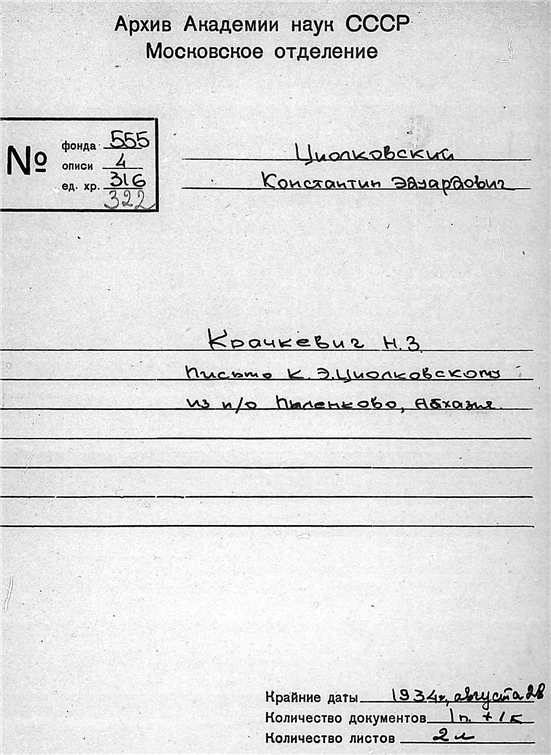 Архив Академии наук СССР
Московское отделение
№
фонда 555
описи 4
ед. хр. 316
322
Циолковский
Константин Эдуардович
Крачкевич Н.З.
Письмо К.Э.Циолковскому
из п/о Пыленково, Абхазия.
Крайние даты 1934г, августа 28
Количество документов 1п. + 1к
Количество листов 2л